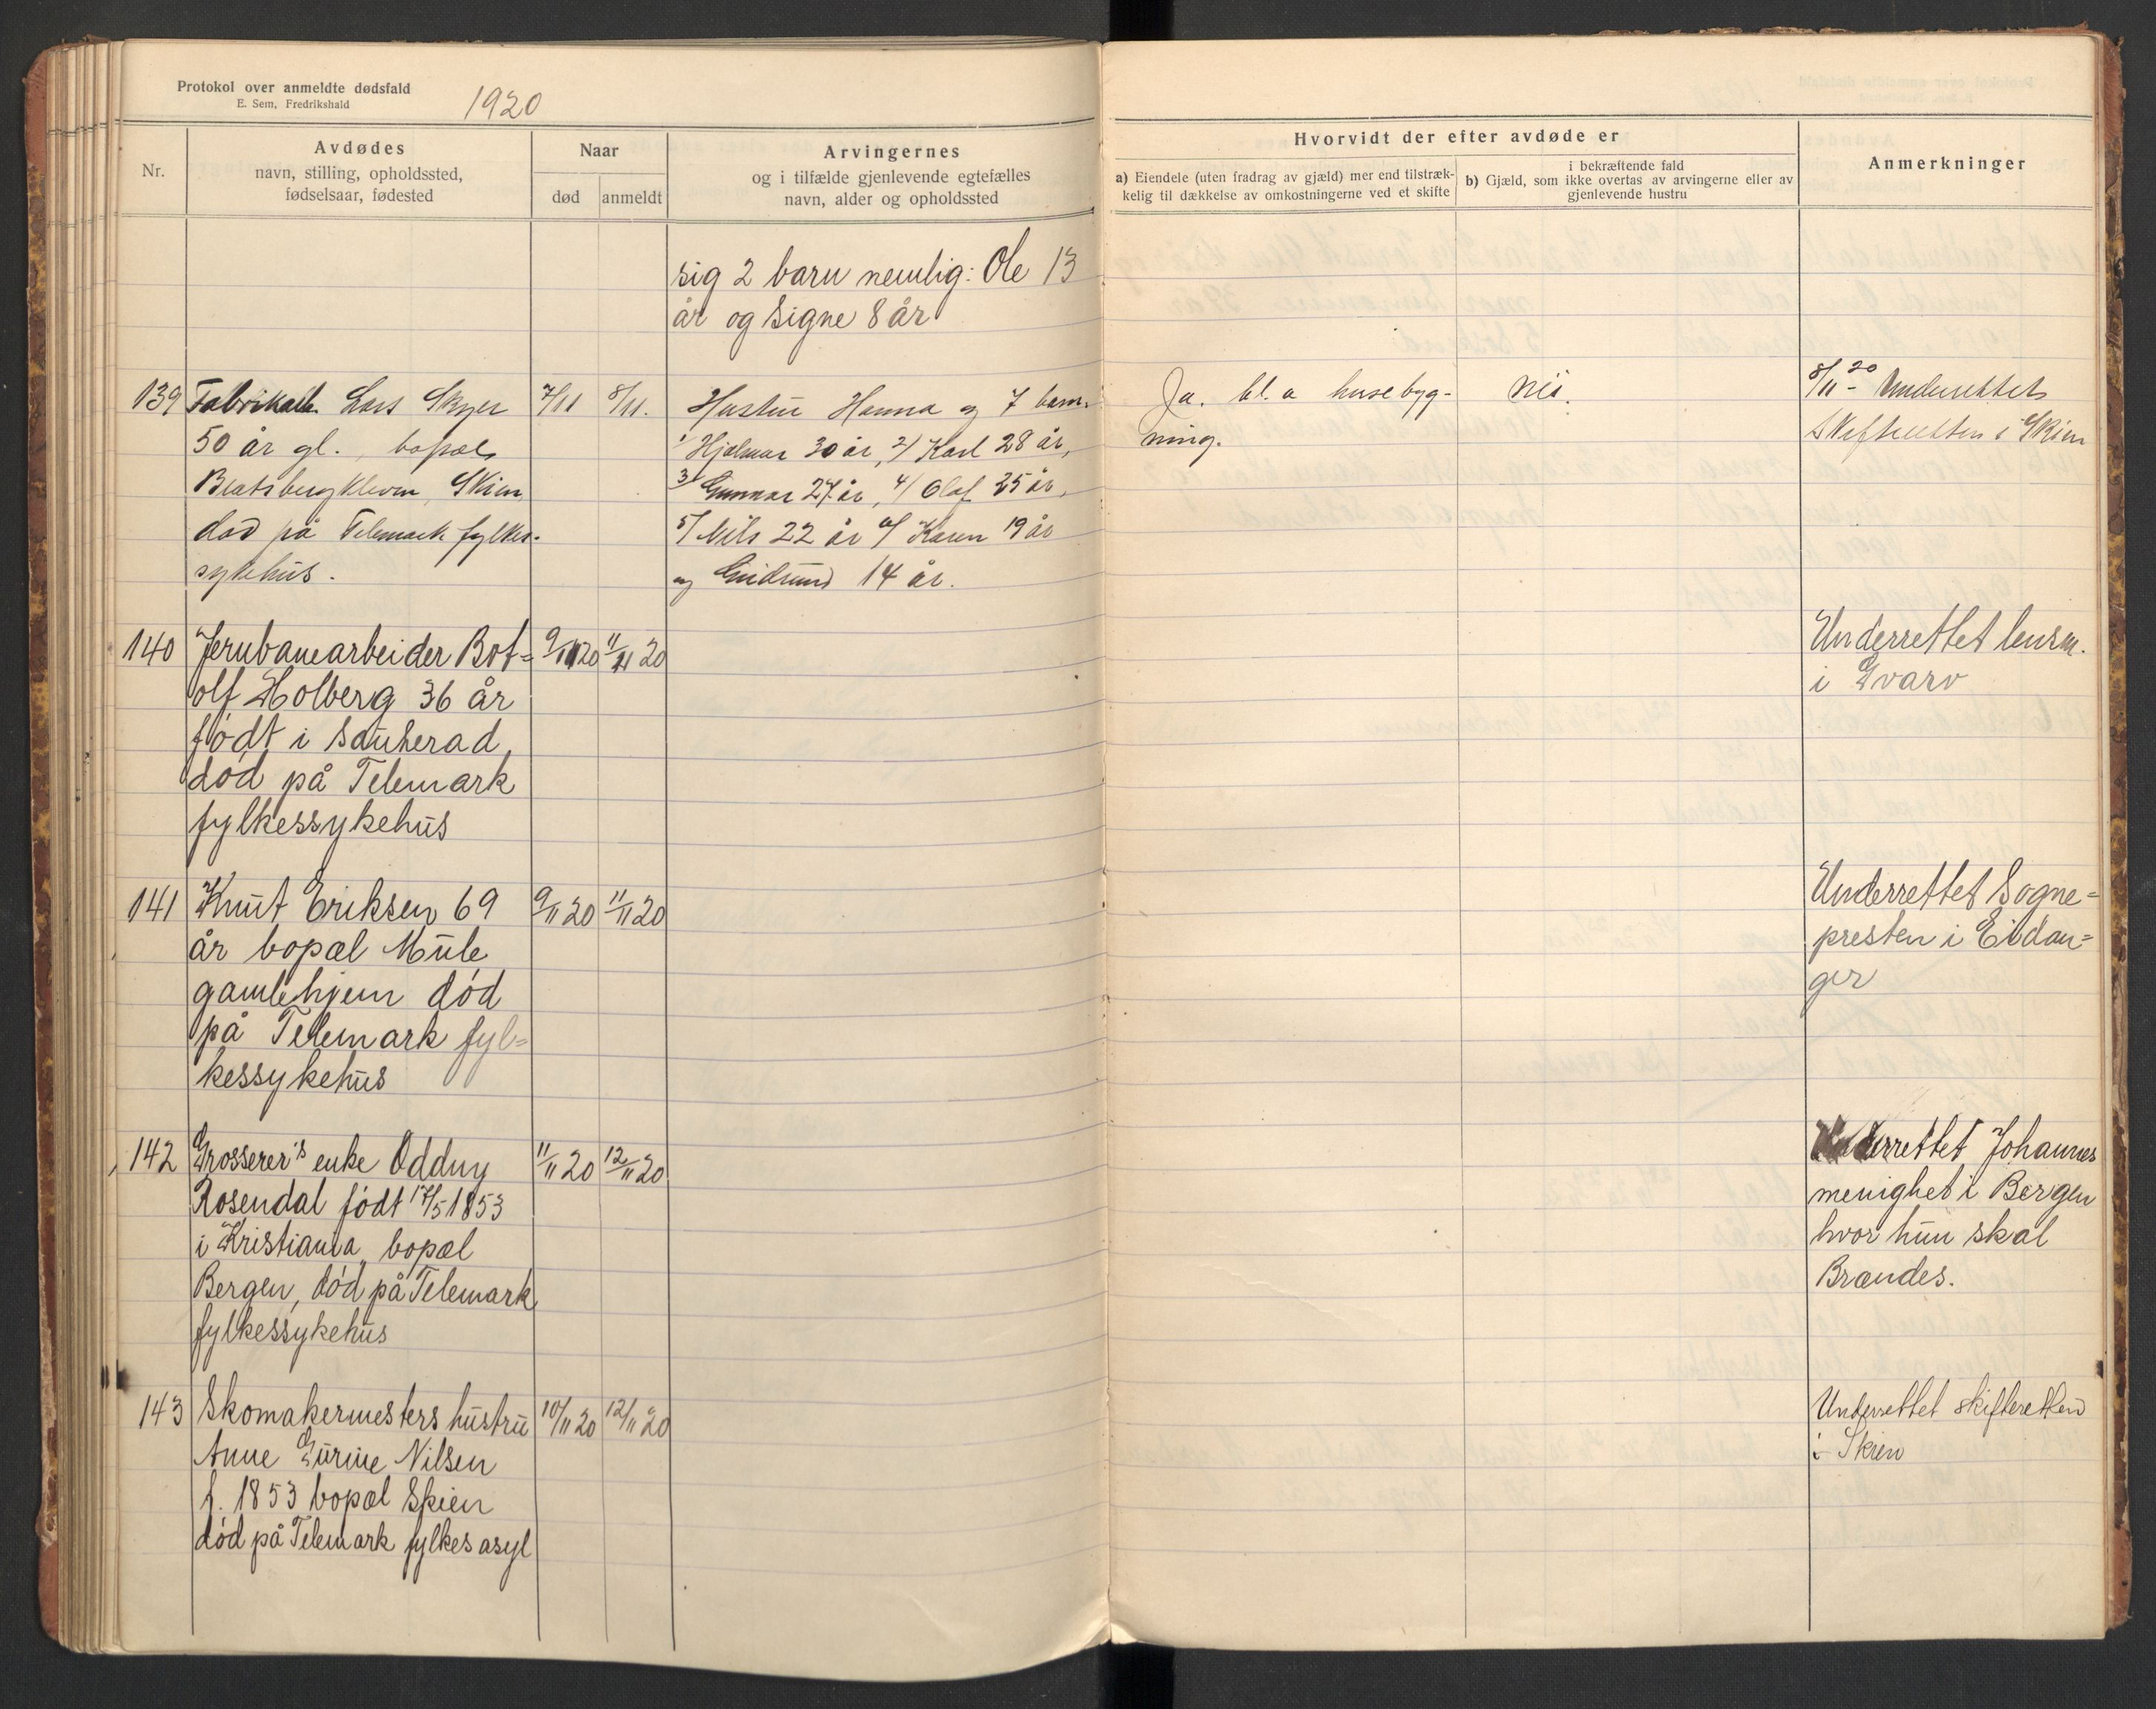 Protokol over anmeldte dødsfald
E. Sem, Fredrikshald
1920
Nr.
Avdødes
navn, stilling, opholdssted,
fødselsaar, fødested
Naar
død
anmeldt
Arvingernes
og i tilfælde gjenlevende egtefælles
navn, alder og opholdssted
Hvorvidt der efter avdøde er
a) Eiendele (uten fradrag av gjæld) mer end tilstræk-
kelig til dækkelse av omkostningerne ved et skifte
i bekræftende fald
b) Gjæld, som ikke overtas av arvingerne eller av
gjenlevende hustru
Anmerkninger
sig 2 barn nemlig: Ole 13
år og Signe 8 år
139 Fabrikarb. Lars 7/11 8/11.
50 år gl., bopæl
Bratsbergkleven, Skien
død på Telemark fylkes-
sykehus.
Hustru Hanna og 7 barn.
1/ Hjalmar 30 år, 2/ Karl 28 år,
3/ Gunnar 27 år, 4/ Olaf 25 år,
5/ Nils 22 år 6/ Karen 19 år
og Gudrund 14 år.
Ja. bl. a husebyg-
ning.
Nei.
8/11-20 Underrettet
Skifteretten i Skien
140 Jernbanearbeider Bot= 9/11 20 11/11 20
olf Holberg 36 år
født i Sauherad,
død på Telemark
fylkessykehus
Underrettet lensm.
i Gvarv
141 Knut Eriksen 69 9/11 20 11/11 20
år bopæl Mule
gamlehjem død
på Telemark fyl=
kessykehus
Underrettet Sogne=
presten i Eidan=
ger
142 Grosserer's enke Oddny 11/11 20 12/11 20
Rosendal født 17/5 1853
i Kristiania, bopæl
Bergen, død på Telemark
fylkessykehus
Underrettet Johannes
menighet i Bergen
hvor hun skal
Brændes.
143 Skomakermesters hustru 10/11 20 12/11 20
Anne Gurine Nilsen
f. 1853 bopæl Skien
død på Telemark fylkes asyl
Underrettet skifteretten
i Skien